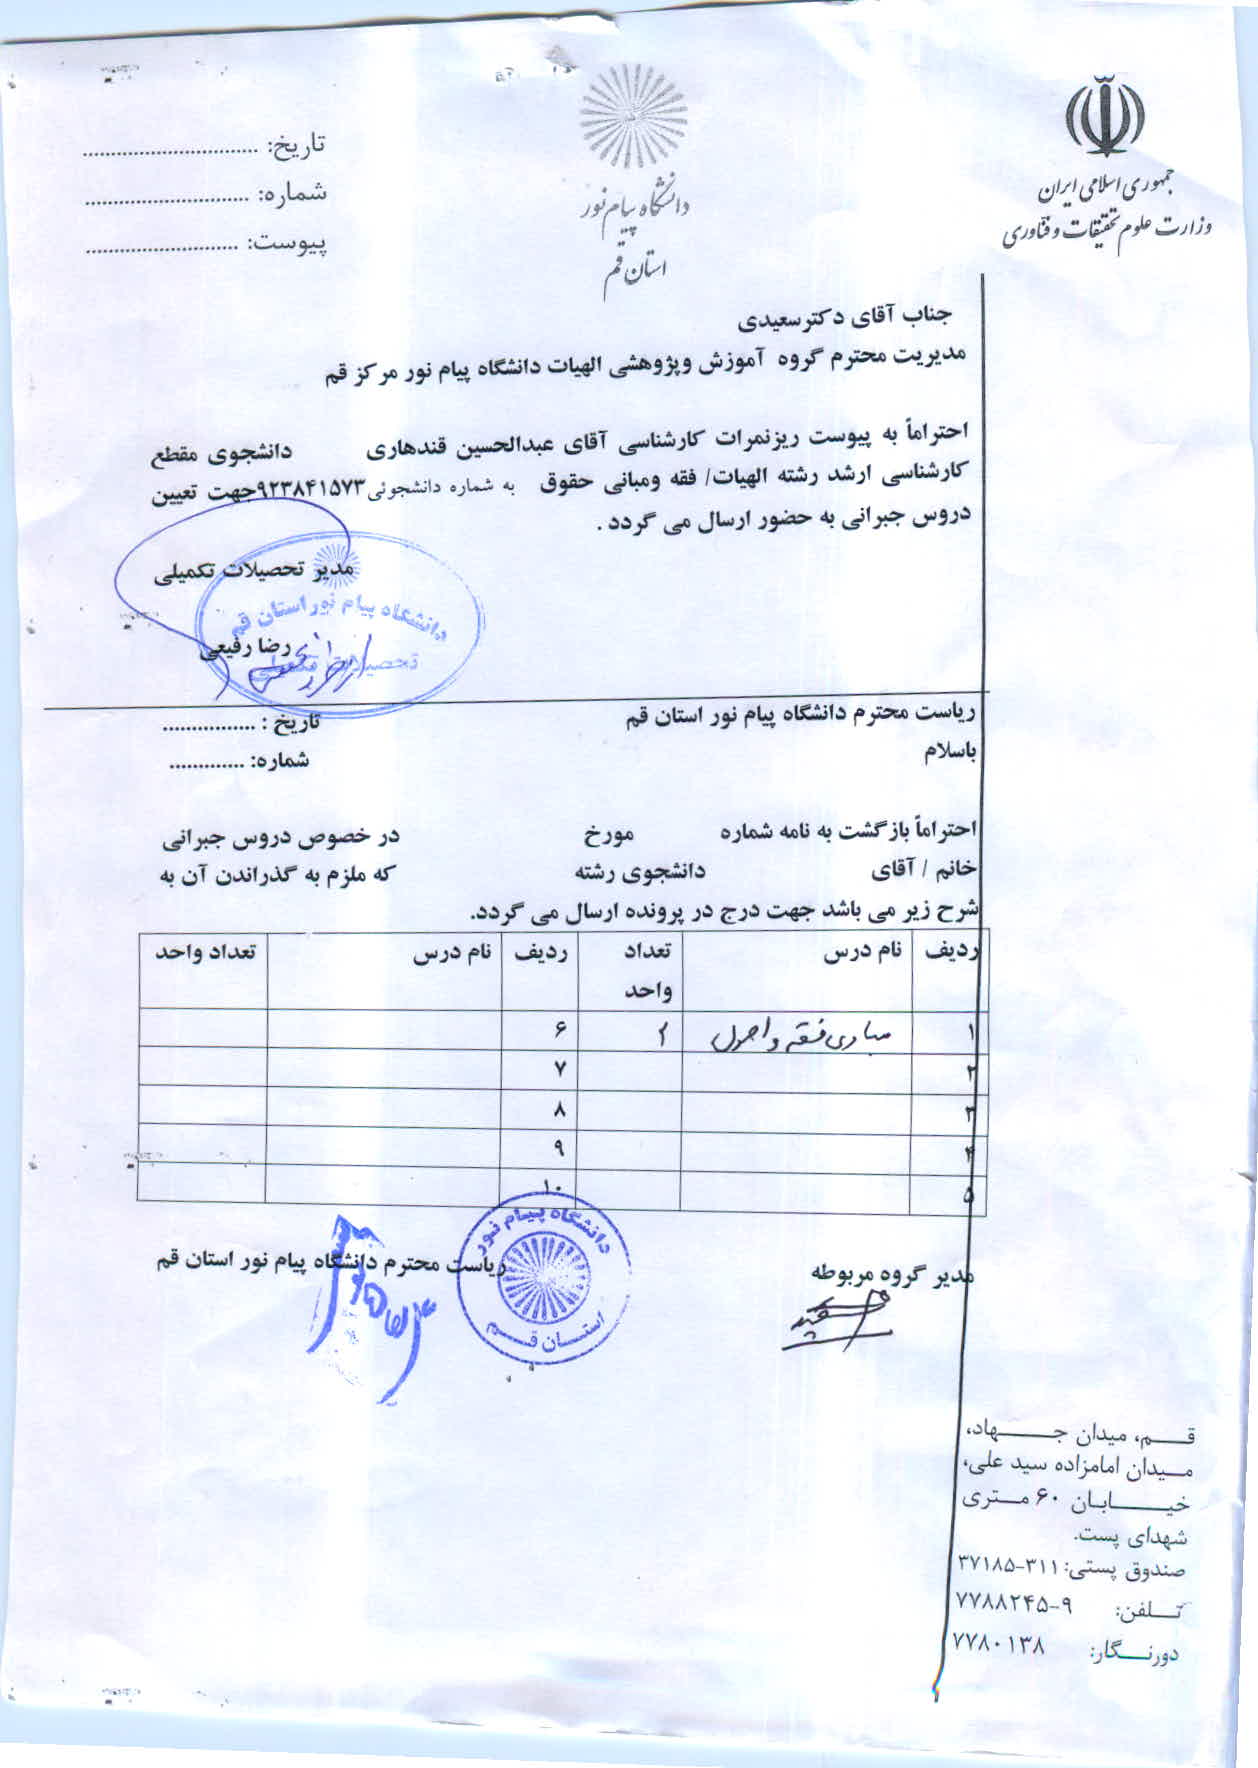 جمهوری اسلامی ایران
وزارت علوم تحقیقات و فناوری
دانشگاه پیام نور
استان قم
تاریخ: ..............................
شماره: ..............................
پیوست: ............................
جناب آقای دکترسعیدی
مدیریت محترم گروه آموزش وپژوهشی الهیات دانشگاه پیام نور مرکز قم
احتراماً به پیوست ریزنمرات کارشناسی آقای عبدالحسین قندهاری دانشجوی مقطع
کارشناسی ارشد رشته الهیات/ فقه ومبانی حقوق به شماره دانشجوئی ۹۲۳۸۴۱۵۷۳جهت تعیین
دروس جبرانی به حضور ارسال می گردد .
مدیر تحصیلات تکمیلی
رضا رفیعی
دانشگاه پیام نور استان قم
تحصیلات تکمیلی
ریاست محترم دانشگاه پیام نور استان قم
تاریخ : ................
باسلام
شماره: .............
احتراماً بازگشت به نامه شماره مورخ در خصوص دروس جبرانی
خانم / آقای دانشجوی رشته که ملزم به گذراندن آن به
شرح زیر می باشد جهت درج در پرونده ارسال می گردد.
ردیف نام درس تعداد واحد ردیف نام درس تعداد واحد
۱ مبادی فقه و اصول ۲ ۶
۲ ۷
۳ ۸
۴ ۹
۵ ۱۰
مدیر گروه مربوطه
ریاست محترم دانشگاه پیام نور استان قم
دانشگاه پیام نور
استان قم
قم، میدان جهاد،
میدان امامزاده سید علی،
خیابان ۶۰ متری
شهدای پست.
صندوق پستی: ۳۱۱-۳۷۱۸۵
تلفن: ۹-۷۷۸۸۲۴۵
دورنگار: ۷۷۸۰۱۳۸